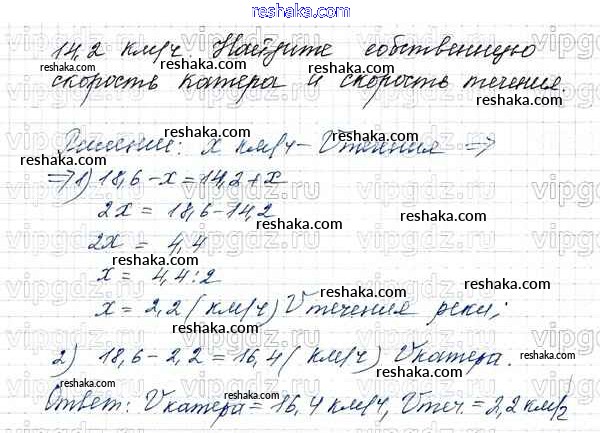 reshaka.com
14,2 км/ч. Найдите собственную
скорость катера и скорость течения.
Решение: x км/ч - Vтечения ⇒
⇒ 1) 18,6 - x = 14,2 + x
2x = 18,6 - 14,2
2x = 4,4
x = 4,4 : 2
x = 2,2 (км/ч) Vтечения реки;
2) 18,6 - 2,2 = 16,4 (км/ч) Vкатера.
Ответ: Vкатера = 16,4 км/ч, Vтеч. = 2,2 км/ч